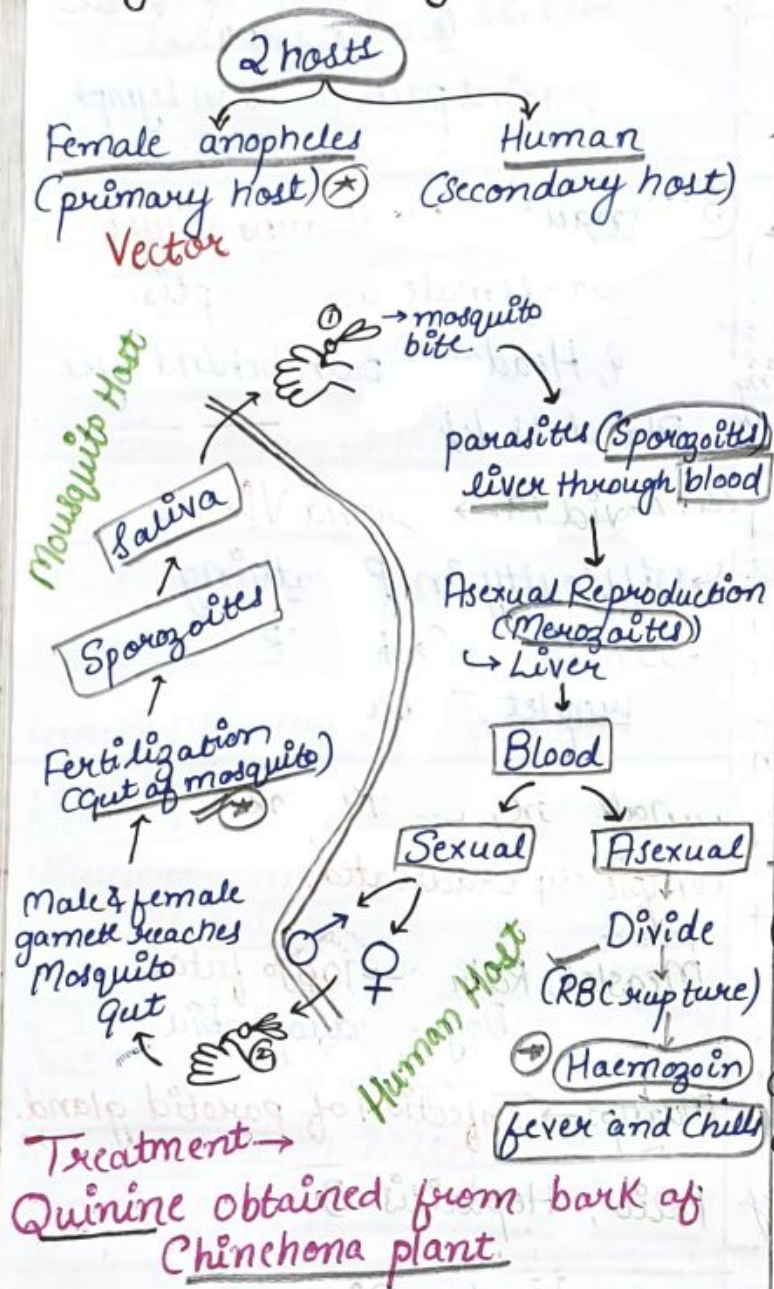 2 hosts
Female anopheles
(primary host)
Vector
Human
(Secondary host)
Mousquito Host
①
→ mosquito
bite
parasites (Sporozoites)
liver through blood
Asexual Reproduction
(Merozoites)
↳ Liver
Blood
Sexual
Asexual
Divide
(RBC rupture)
Haemozoin
fever and chills
Human Host
♂
♀
②
Male & female
gamete reaches
Mosquito
Gut
Fertilization
(Gut of mosquito)
Sporozoites
Saliva
Treatment →
Quinine obtained from bark of
Chinchona plant